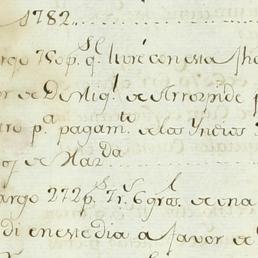 1782
argo 750 p.s q.e libré con esta fha
or de D.n Mig.l de Arrozpide p
aro p.a pagam.to de los Ynteros
de Haz.da
argo 272 p.s 7 r.s 6 gr.s de una l
di en este dia a favor de